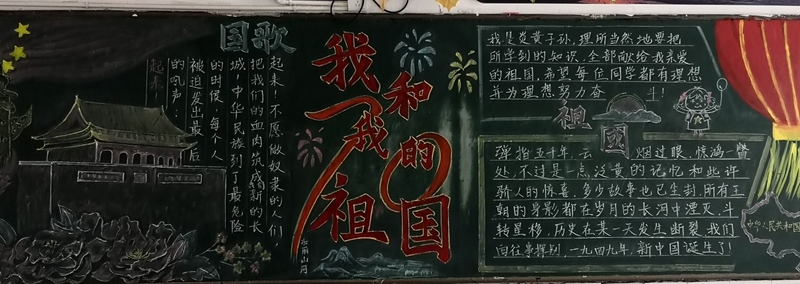 国歌
起来！不愿做奴隶的人们
把我们的血肉筑成新的长
城！中华民族到了最危险
的时候，每个人
被迫发出最后
的吼声。
起来！
我和我的祖国
江山月
我是炎黄子孙，理所当然地要把
所学到的知识，全部献给我亲爱
的祖国，希望每位同学都有理想
并为理想努力奋斗！
祖国
弹指五千年，云烟过眼，惊鸿一瞥
处，不过是一点泛黄的记忆和些许
骄人的惊喜，多少故事也已尘封，所有王
朝的身影都在岁月的长河中湮灭，斗
转星移，历史在某一天发生断裂，我们
向往事挥别，一九四九年，新中国诞生了！
中华人民共和国